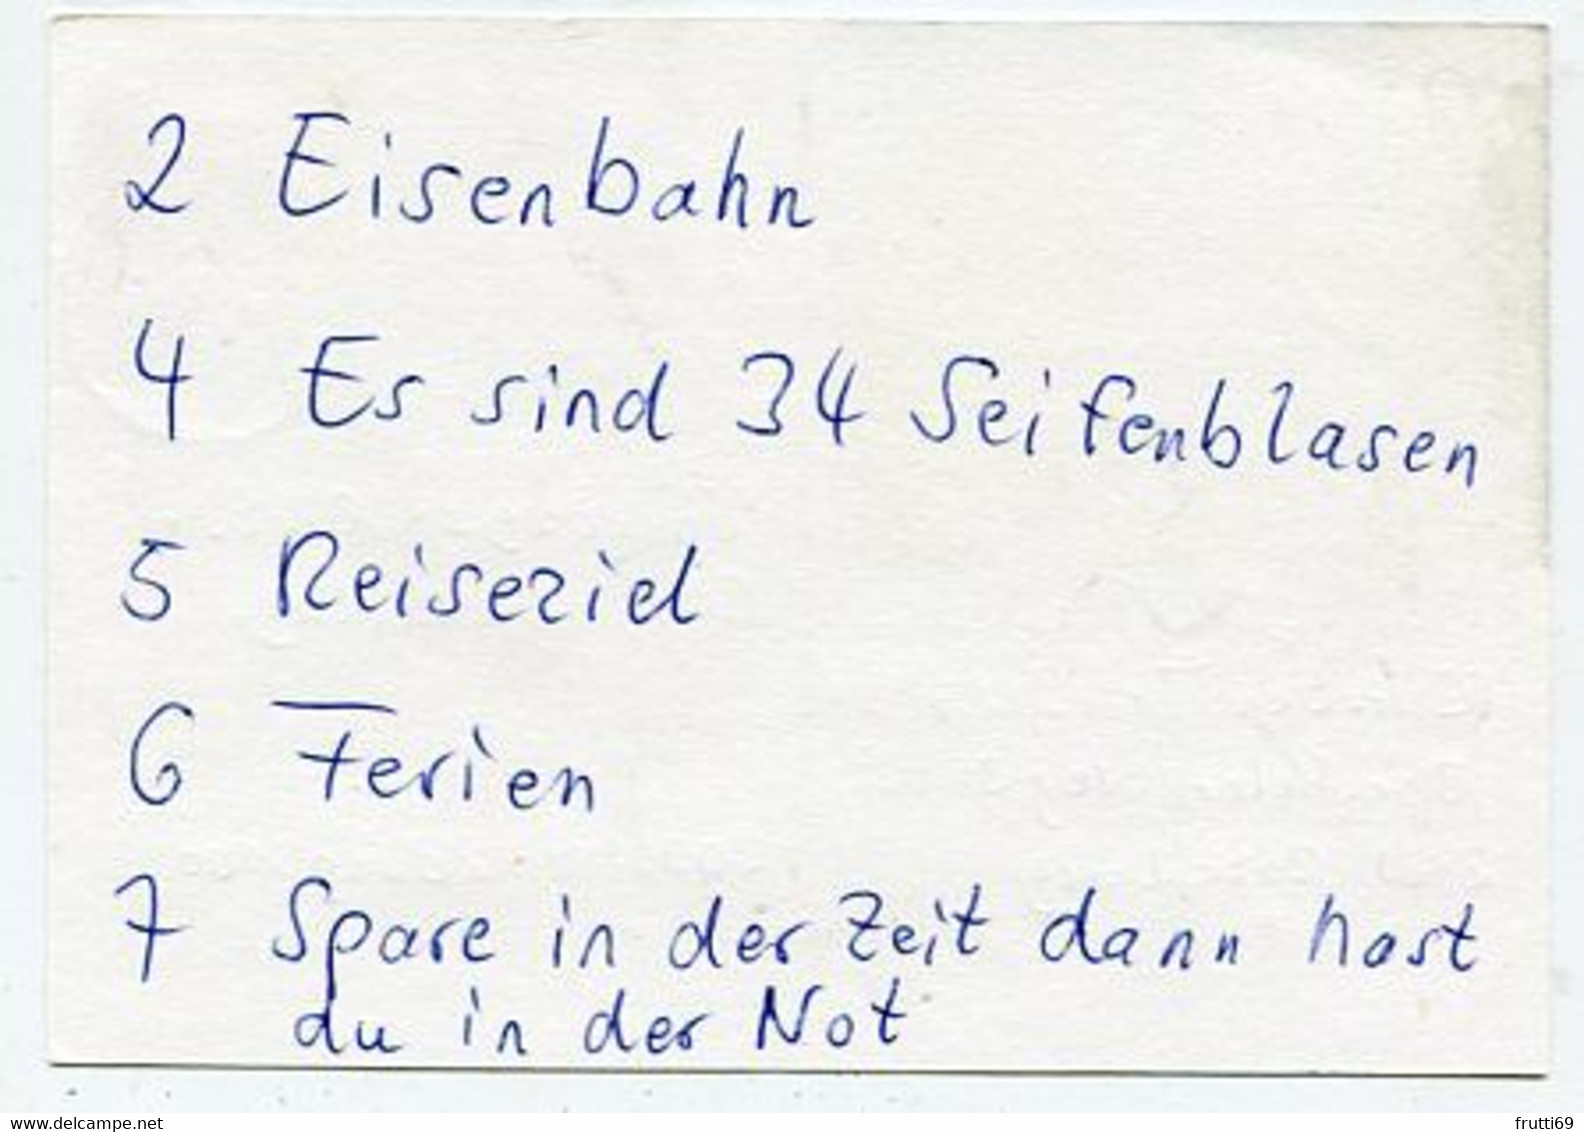 2 Eisenbahn
4 Es sind 34 Seifenblasen
5 Reiseziel
6 Ferien
7 Spare in der Zeit dann hast
du in der Not
www.delcampe.net
frutti69